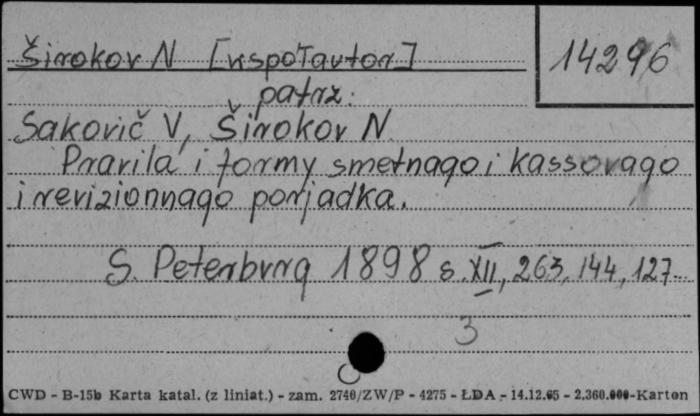 Širokov N [wspołautor]
14296
patrz:
Sakovič V, Širokov N
Pravila i formy smetnago i kassovago
i revizionnago porjadka.
S. Peterburg 1898 s. XII, 263, 144, 127
3
CWD - B-15b Karta katal. (z liniat.) - zam. 2740/ZW/P - 4275 - ŁDA - 14.12.65 - 2.360.000-Karton